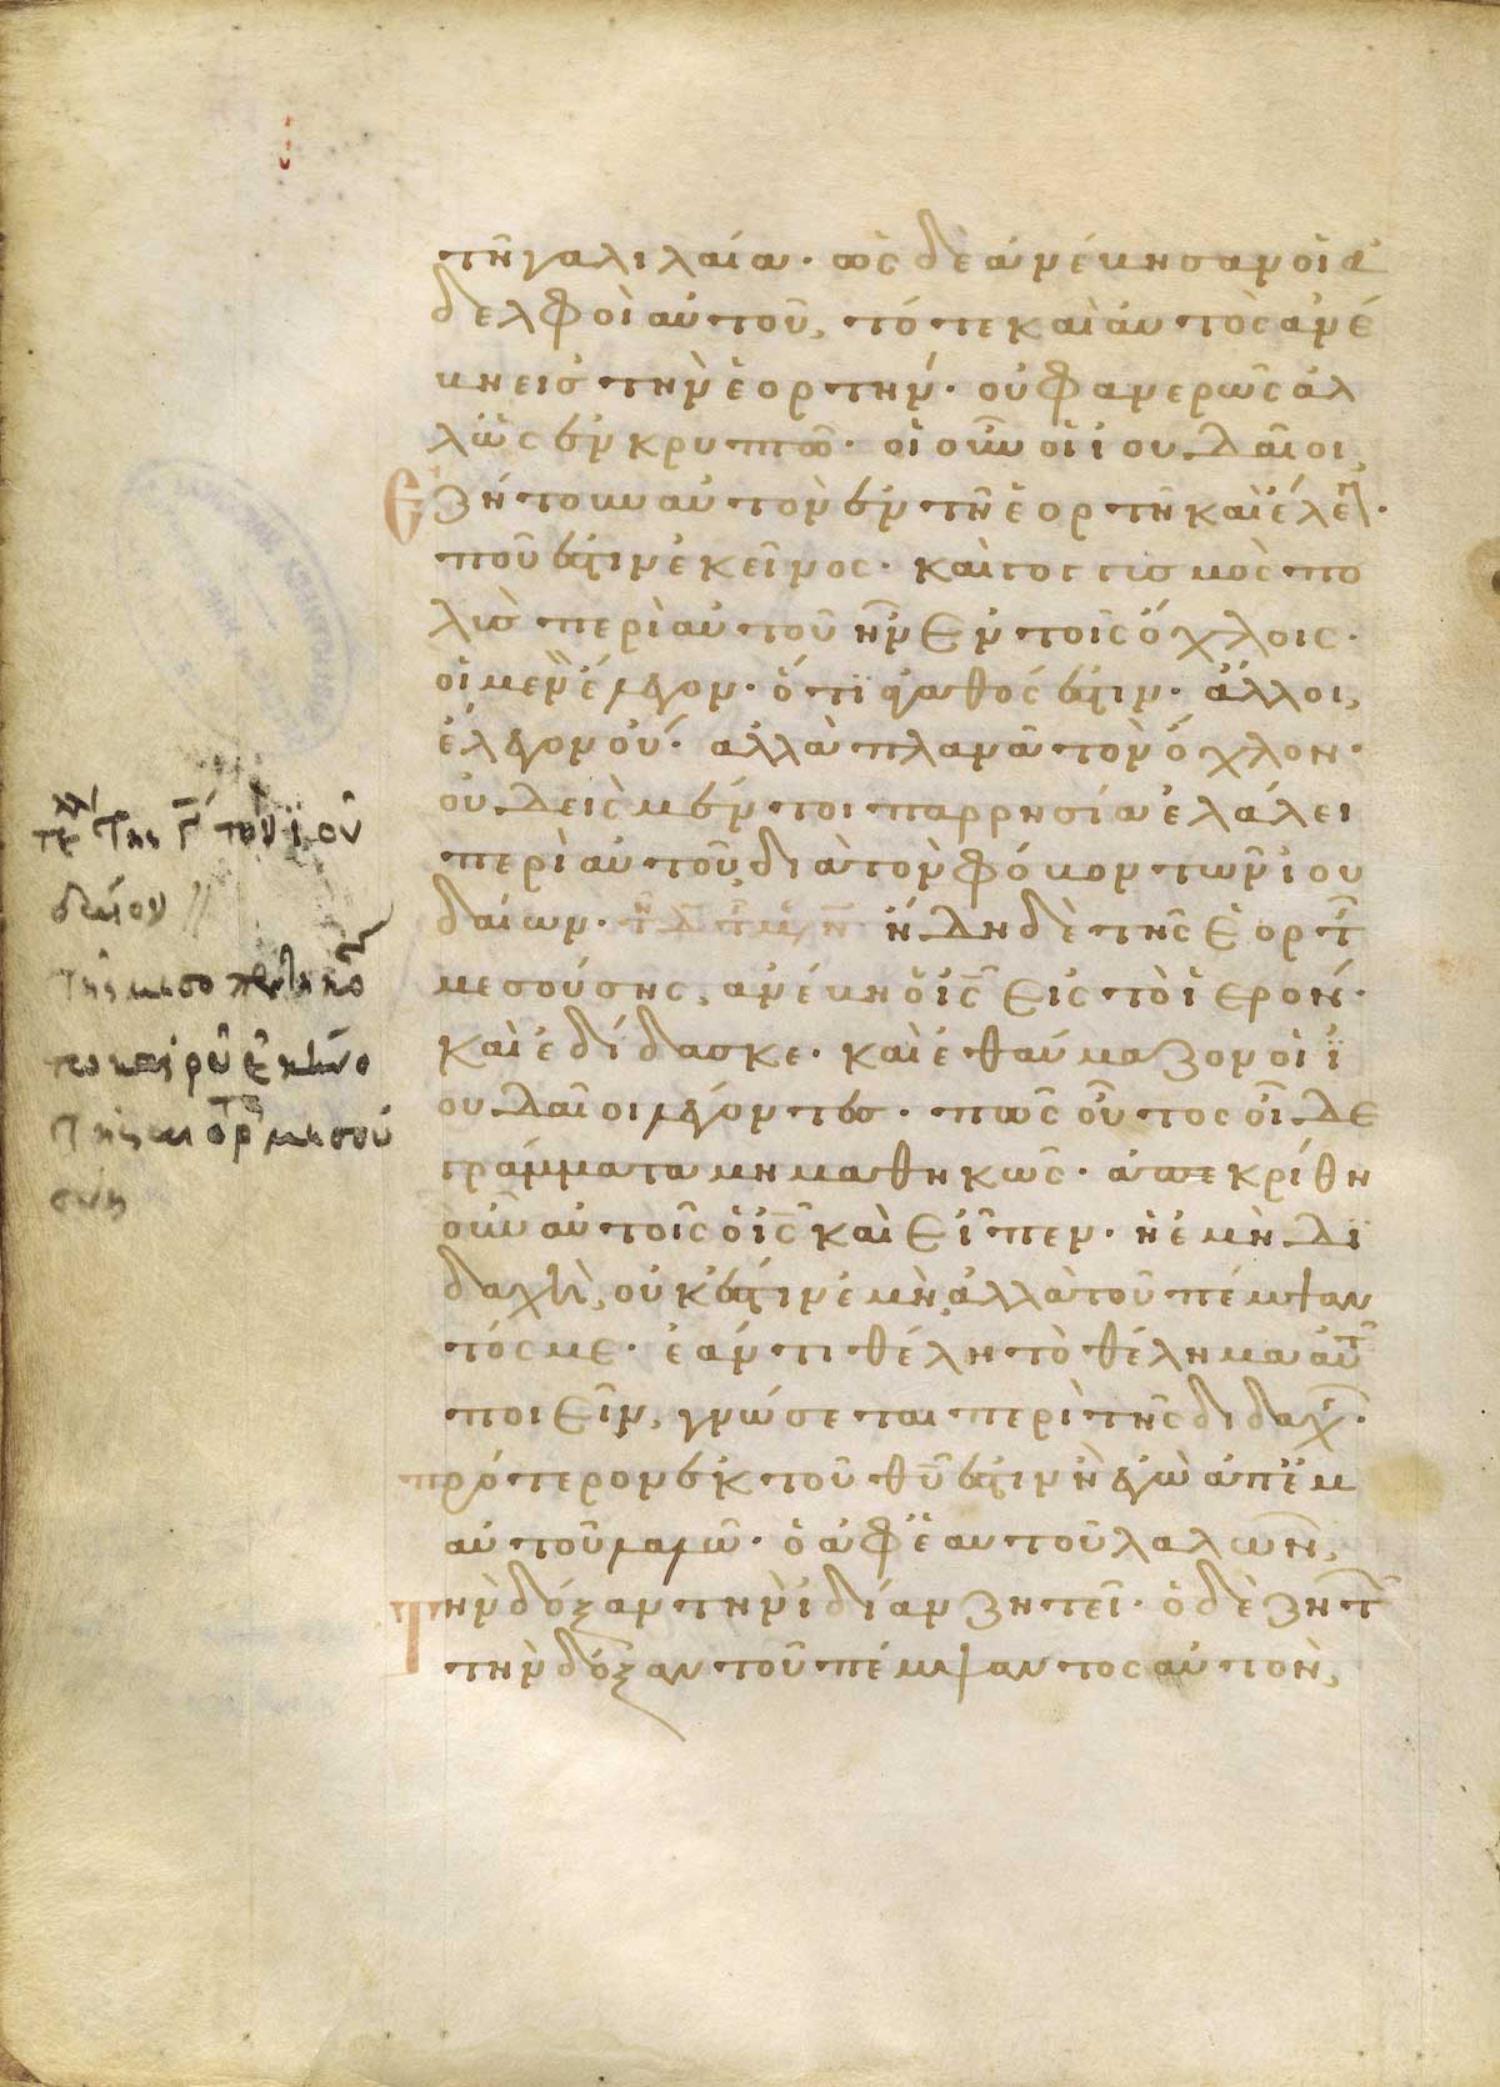 τῆ γαλιλαία· ὡς δὲ ἀνέβησαν οἱ ἀ
δελφοὶ αὐτοῦ, τότε καὶ ἀυτὸς ἀνέ
βη εἰσ τὴν ἑορτήν· οὐ φανερῶς ἀλ
λ᾽ ὡς ἐν κρυπτῶ· οἱ οὖν οἱ ἰουδαῖοι,
Ἐζήτουν αὐτὸν ἐν τῆ ἑορτῆ καὶ ἔλεγ·
ποῦ ἐστὶν ἐκεῖνος· καὶ γογγισμὸς πο
λὶσ περὶ αὐτοῦ ἦν ἐν τοῖς ὄχλοις·
οἱ μὲν ἔλεγον· ὅτι ἀγαθός ἐστιν· ἄλλοι,
ἔλεγον οὐ· ἀλλὰ πλανᾶ τὸν ὄχλον·
οὐδεὶς μέντοι παρρησία ἐλάλει
περὶ αὐτοῦ, διὰ τὸν φόβον τῶν ἰου
δαίων· ἤδη δὲ τῆς ἑορτ
μεσούσης, ἀνέβη ὁ ἰς εἰς τὸ ἱερόν·
καὶ ἐδίδασκε· καὶ ἐθαύμαζον οἱ ἰ
ουδαῖοι λέγοντεσ· πῶς οὗτος οἶδε
γράμματα μὴ μαθηκῶς· ἀπεκρίθη
οὖν αὐτοῖς ὁ ἰς καὶ εἶπεν· ἡ ἐμὴ δι
δαχὴ, οὐκ ἔστιν ἐμὴ, ἀλλὰ τοῦ πέμψαν
τός με· ἐάν τι θέλη τὸ θέλημα αὐτ
ποιεῖν, γνώσεται περὶ τῆς διδαχ·
πρότερον ἐκ τοῦ θυ ἐστιν ἢ ἐγὼ ἀπ᾽ ἐμ
αυτοῦ λαλῶ· ὁ ἀφ᾽ ἑαυτοῦ λαλῶν,
Τὴν δόξαν τὴν ἰδίαν ζητεῖ· ὁ δὲ ζητ
τὴν δόξαν τοῦ πέμψαντος αὐτὸν,
τῆς γ τοῦ ἰου
δαίον
τῆς μεσοπεντηκο
το καιρῶ ἐκείνο
τῆς ἑορτ μεσού
σης